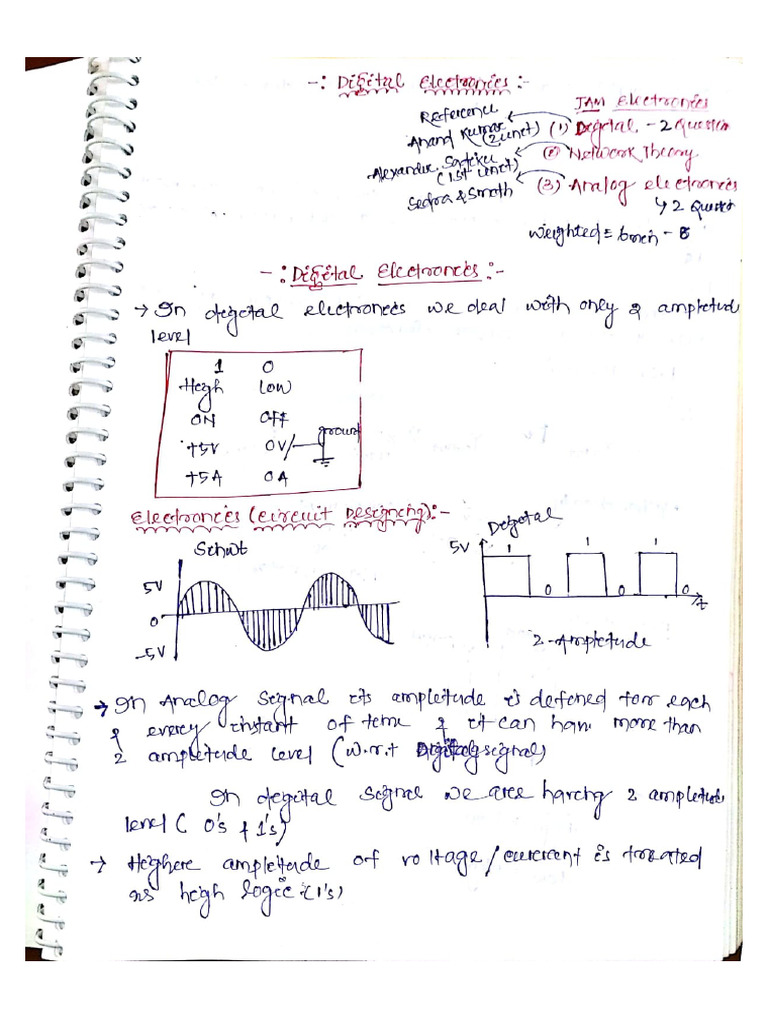 -: Digital Electronics :-
JAM Electronics
Reference
Anand Kumar (2 unit)
(1) Digital - 2 Question
Alexander, Sadiku (1st unit)
(2) Network Theory
Sedra & Smith
(3) Analog electronics
↳ 2 Quest
weighted = 6 min - 8
-: Digital Electronics :-
→ In digital electronics we deal with only 2 amplitud
level
1 0
High Low
ON OFF
+5V 0V/ ground
+5A 0A
Electronics (Circuit Designing):-
Digital
5V
5V
0
-5V
1 1 1
0 0 0
t
2-Amplitude
→ In Analog Signal its amplitude is defined for each
& every instant of time & it can have more than
2 amplitude level (w.r.t Digital signal)
In digital signal we are having 2 amplitude
level ( 0's & 1's)
→ Highere amplitude of voltage/current is treated
as high logic.(1's)